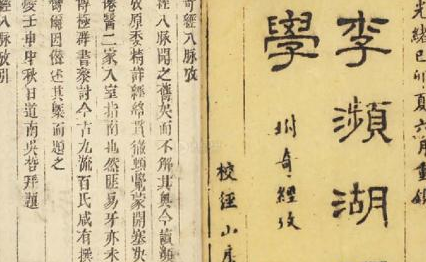 光緒己卯夏六月重鐫
李瀕湖
學
附奇經攷
校經山房
奇經八脈攷
奇經八脈聞之舊矣而不解其奧今讀瀕
攷原委精詳經絡貫徹頓覺蒙開塞
僊醫二家入室指南也然匪易牙亦未
博極群書參討今古九流百氏咸有撰
爾因僭述其槩而題之
壬申中秋日道南吳哲拜題
八脈攷引